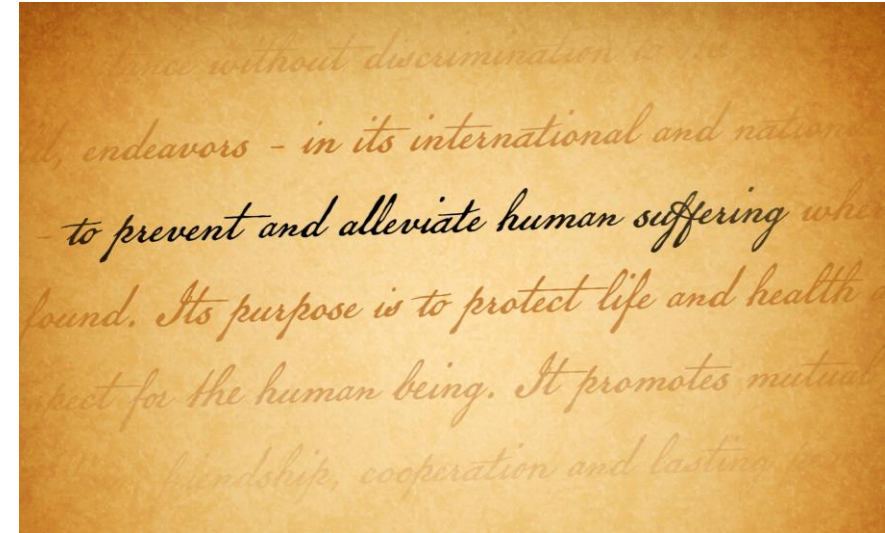 without discrimination to the
endeavors - in its international and
- to prevent and alleviate human suffering
found. Its purpose is to protect life and health
for the human being. It promotes mutual
friendship, cooperation and lasting